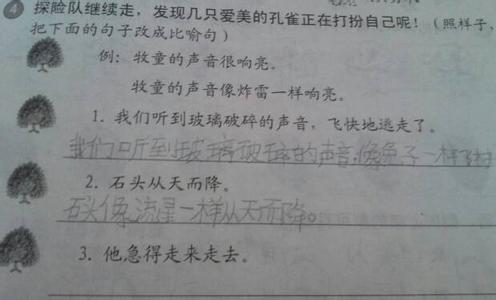 4 探险队继续走，发现几只爱美的孔雀正在打扮自己呢！（照样子，
把下面的句子改成比喻句）
例：牧童的声音很响亮。
牧童的声音像炸雷一样响亮。
1. 我们听到玻璃破碎的声音，飞快地逃走了。
我们听到玻璃破碎的声音，像兔子一样
2. 石头从天而降。
石头像流星一样从天而降。
3. 他急得走来走去。